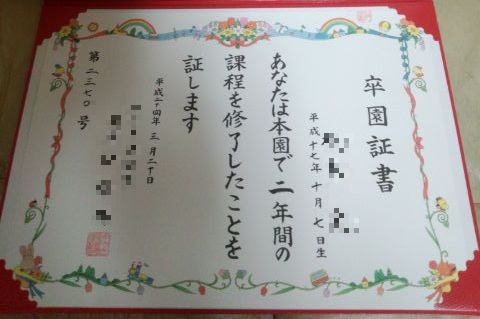 卒園証書
平成十七年十月七日生
あなたは本園で二年間の
課程を修了したことを
証します
平成二十四年三月二十日
第二三七〇号